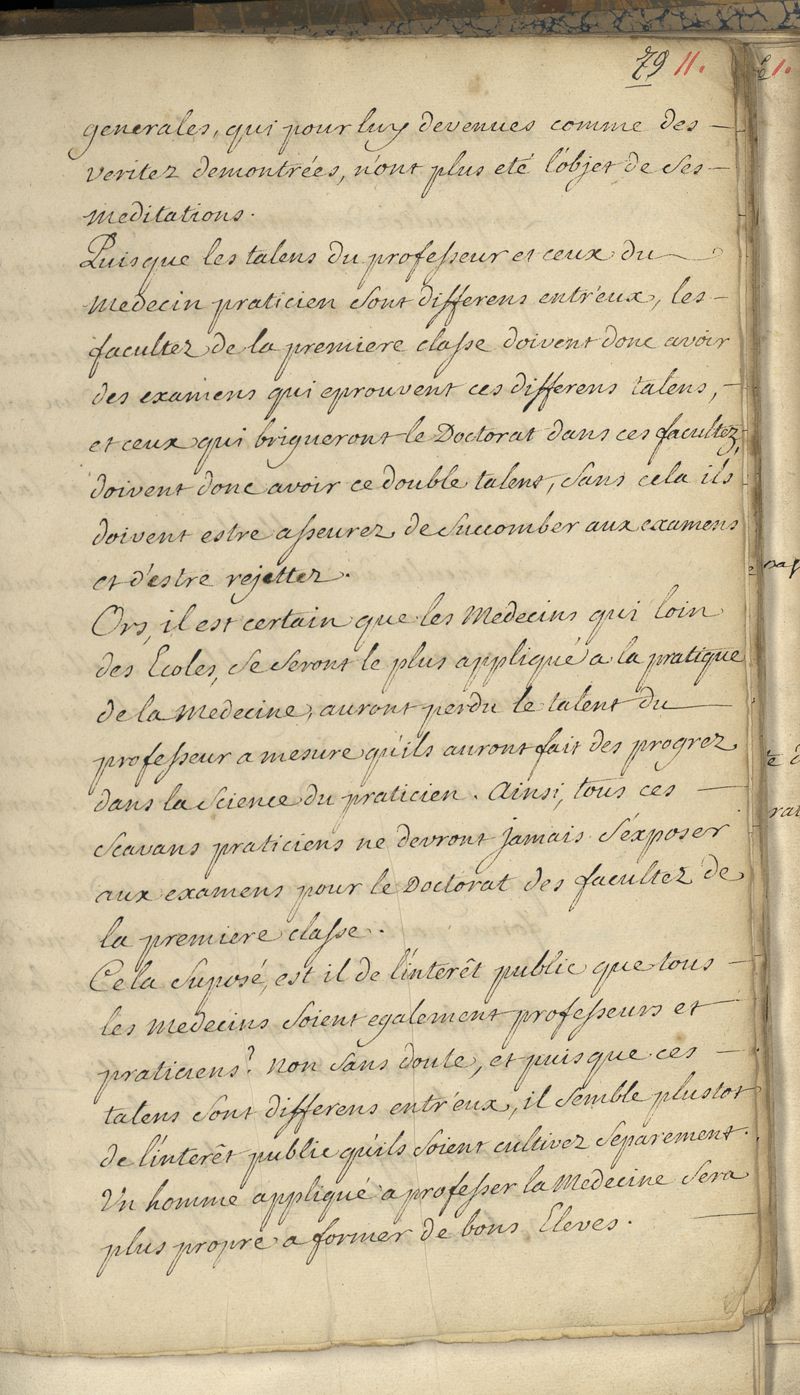 79 11.
generales, qui pour luy devenues comme des
veritez demontrées, n'ont plus eté l'objet de ses
meditations.
Puisque les talens du professeur et ceux du
Medecin praticien sont differens entr'eux, les
facultez de la premiere classe doivent donc avoir
des examens qui eprouvent ces differens talens,
et ceux qui brigueront le Doctorat dans ces facultez,
doivent donc avoir ce double talent, sans cela ils
doivent estre asseurez de succomber aux examens
et d'estre rejettez.
Ors, il est certain que les Medecins qui loin
des Ecoles, se seront le plus appliqué a la pratique
de la Medecine, auront perdu le talent du
professeur a mesure qu'ils auront fait des progrez
dans la science du praticien. Ainsi, tous ces
scavans praticiens ne devront jamais s'exposer
aux examens pour le Doctorat des facultez de
la premiere classe.
Cela suposé, est il de l'interêt public que tous
les Medecins soient egalement professeurs et
praticiens? Non sans doute, et puisque ces
talens sont differens entr'eux, il semble plustot
de l'interêt public qu'ils soient cultivez separement.
Un homme appliqué a professer la Medecine sera
plus propre a former de bons Eleves.